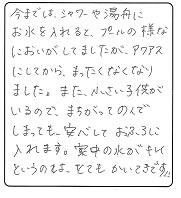 今までは、シャワーや湯舟に
お水を入れると、プールの様な
においがしてましたが、アクアス
にしてから、まったくなくなり
ました。また、小さい子供が
いるので、まちがってのんで
しまっても、安心して おふろに
入れます。家中の水がキレイ
というのは、とても かいてきです!!